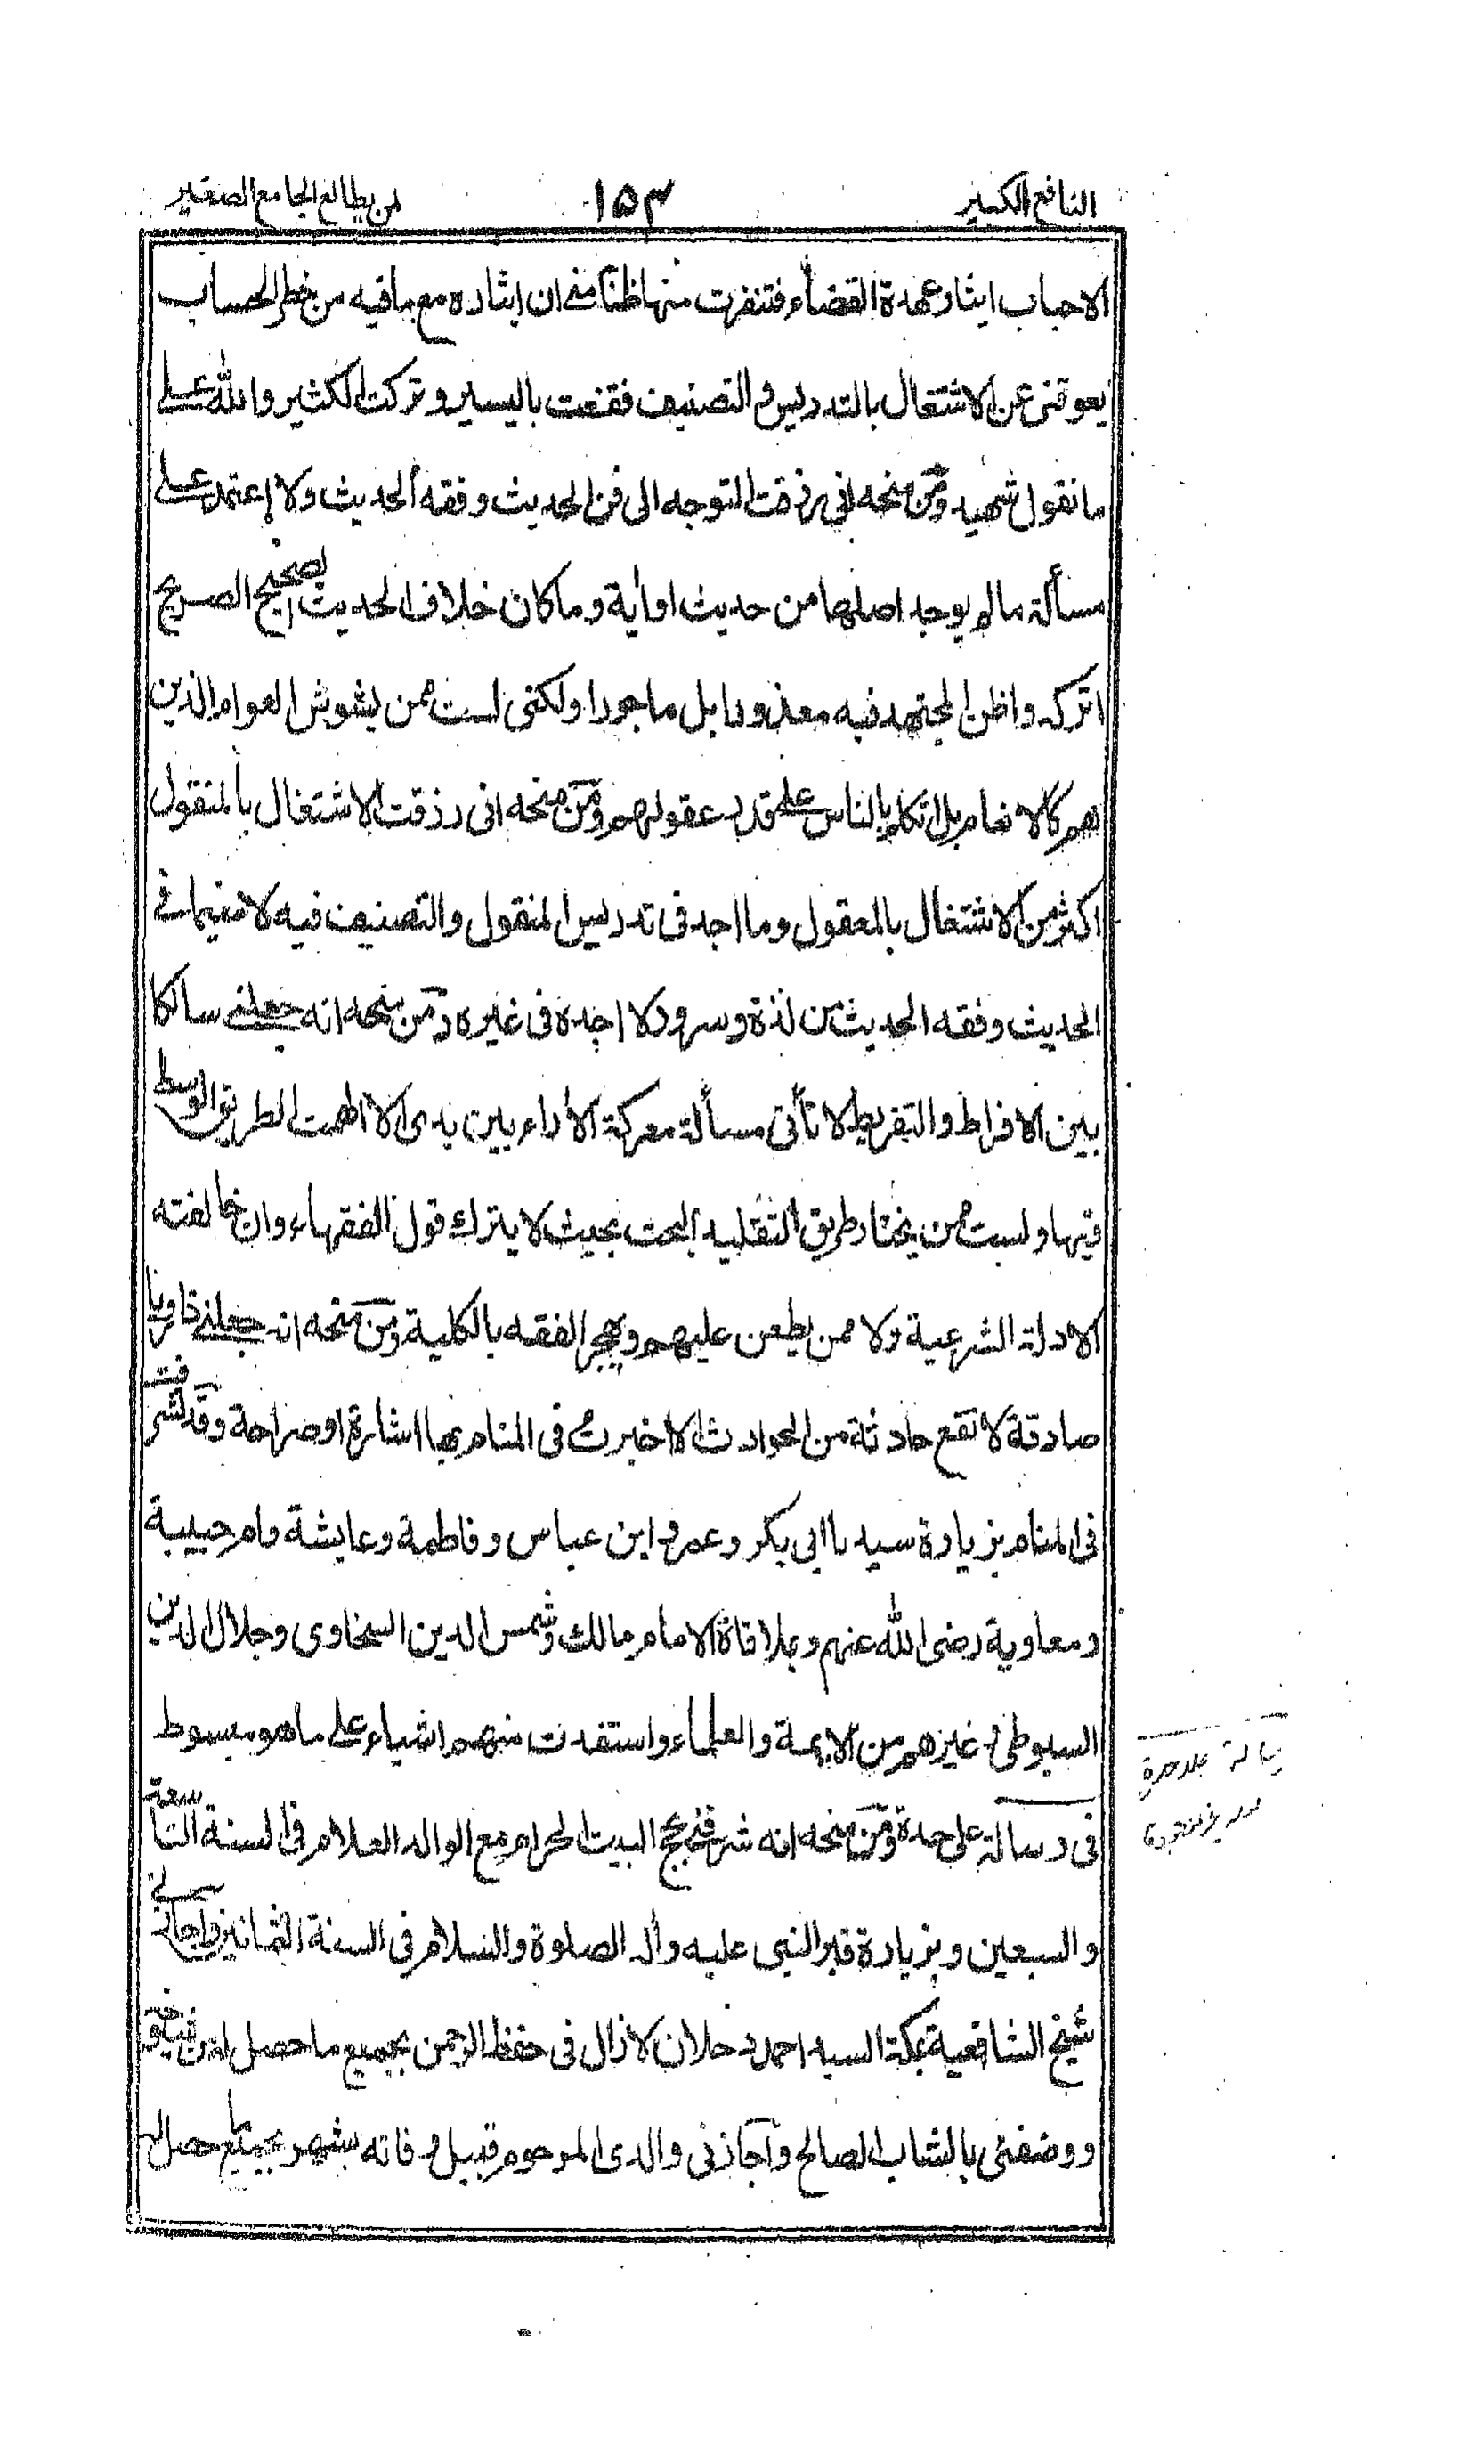 النافع الكبير ١٥٣ لمن يطالع الجامع الصغير
الاحباب ايثار عهدة القضاء فتنفرت منها ظنا منى ان ايثاره مع ما فيه من خطر الحساب
يعوقنى عن الاشتغال بالتدريس والتصنيف فقنعت باليسير وتركت الكثير والله على
ما نقول شهيد ومن منحه انى رزقت التوجه الى فن الحديث وفقه الحديث ولا اعتمد على
مسألة ما لم يوجد اصلها من حديث او اية وما كان خلاف الحديث الصحيح الصريح
اتركه واظن المجتهد فيه معذورا بل ماجورا ولكنى لست ممن يشوش العوام الذين
هم كالانعام بل اتكلم بالناس على قدر عقولهم ومن منحه انى رزقت الاشتغال بالمنقول
اكثر من الاشتغال بالمعقول وما اجد فى تدريس المنقول والتصنيف فيه لا سيما فى
الحديث وفقه الحديث من لذة وسرور لا اجده فى غيره ومن منحه انه جعلنى سالكا
بين الافراط والتفريط لا تأتى مسألة معركة الأراء بين يدى الا الهمت الطريق الوسط
فيها ولست ممن يختار طريق التقليد البحت بحيث لا يترك قول الفقهاء وان خالفته
الادلة الشرعية ولا ممن يطعن عليهم ويهجر الفقه بالكلية ومن منحه انه جعلنى
صادقة لا تقع حادثة من الحوادث الا اخبرت فى المنام بها اشارة او صراحة وقد تشرفت
فى المنام بزيارة سيدنا ابى بكر وعمر وابن عباس وفاطمة وعايشة وام حبيبة
ومعاوية رضى الله عنهم وبملاقاة الامام مالك وشمس الدين السخاوى وجلال الدين
السيوطى وغيرهم من الايمة والعلماء واستفدت منهم اشياء على ما هو مبسوط
فى رسالة على حدة ومن منحه انه شرفنى بحج البيت الحرام مع الوالد العلام فى السنة التاسعة
والسبعين وبزيارة قبر النبى عليه وأله الصلوة والسلام فى السنة الثمانين واجازنى
شيخ الشافعية بمكة السيد احمد دحلان لا زال فى حفظ الرحمن بجميع ما حصل له من شيوخه
ووصفنى بالشاب الصالح واجازنى والدى المرحوم قبيل وفاته بشهر بجميع ما حصل له